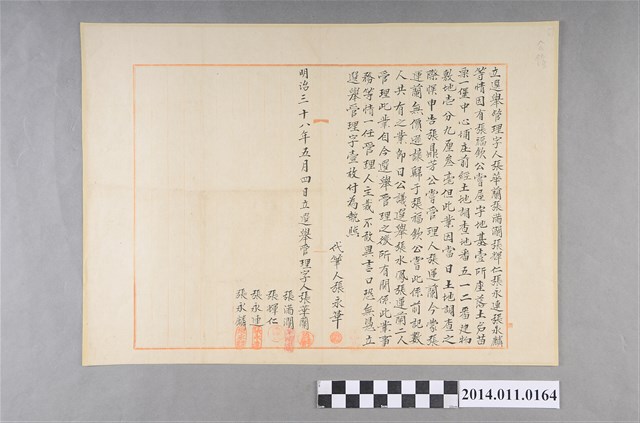 立選舉管理字人張華蘭張滿瀾張輝仁張永連張永麟
等情因有張福欽公嘗屋宇地基壹所座落土名苗
栗一堡中心埔庄前經土地調查地番五一二番建物
敷地壱分九厘叁毫但此業因當日土地調查之
際悞申告張鼎芳公嘗管理人張運蘭今嘗張
運蘭無償退讓歸于張福欽公嘗此係前記數
人共有之業即日公議選舉張水鳳張運蘭二人
管理此業自今選舉管理之後所有關係此業事
務等情一任管理人主裁不敢異言口恐無憑立
選舉管理字壹枚付為執照
代筆人張永華
明治三十八年五月四日立選舉管理字人張華蘭
張滿瀾
張輝仁
張永連
張永麟
2014.011.0164